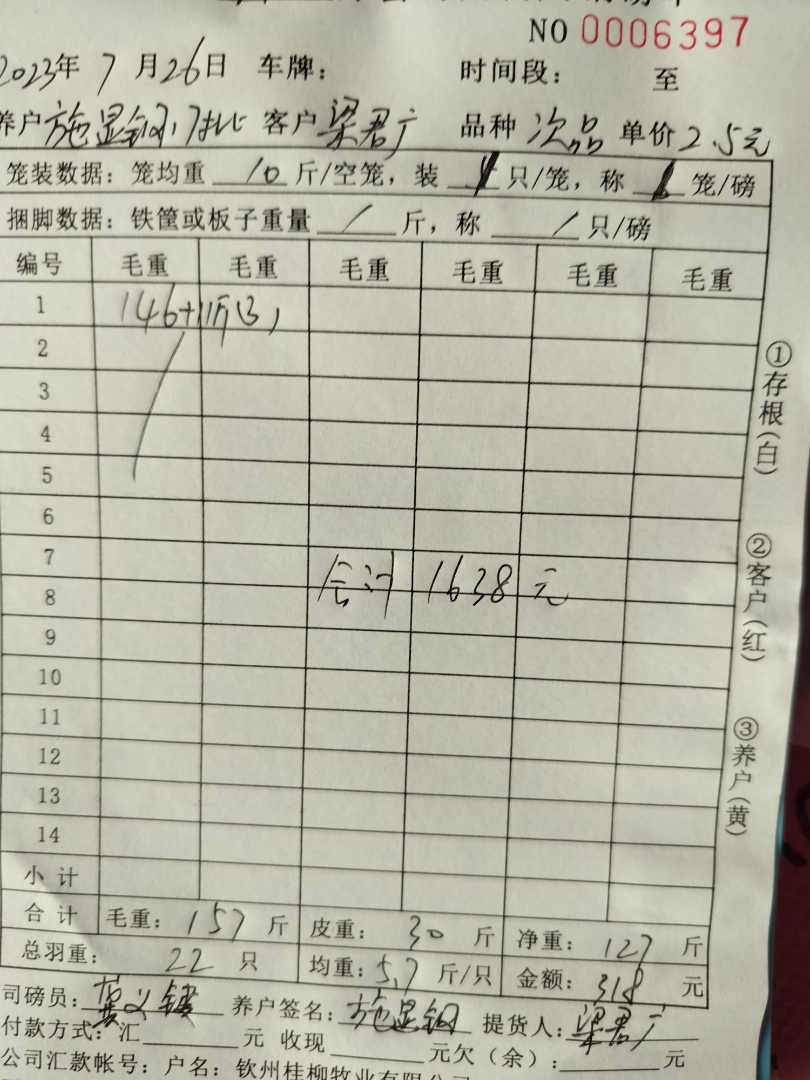 NO 0006397
2023年 7月26日 车牌： 时间段： 至
养户 施显钢 客户 梁君广 品种 次品 单价 2.5元
笼装数据：笼均重 10 斤/空笼，装 只/笼，称 笼/磅
捆脚数据：铁筐或板子重量 / 斤，称 / 只/磅
编号 毛重 毛重 毛重 毛重 毛重 毛重
1 146+11斤(3)
2
3
4
5
6
7
合计 1638元
8
9
10
11
12
13
14
小计
合计 毛重：157斤 皮重：30斤 净重：127斤
总羽重：22只 均重：5.7斤/只 金额：318元
司磅员： 养户签名：施显钢 提货人：梁君广
付款方式：汇 元 收现 元欠（余）： 元
公司汇款帐号：户名：钦州桂柳牧业有限公司
①存根（白）
②客户（红）
③养户（黄）